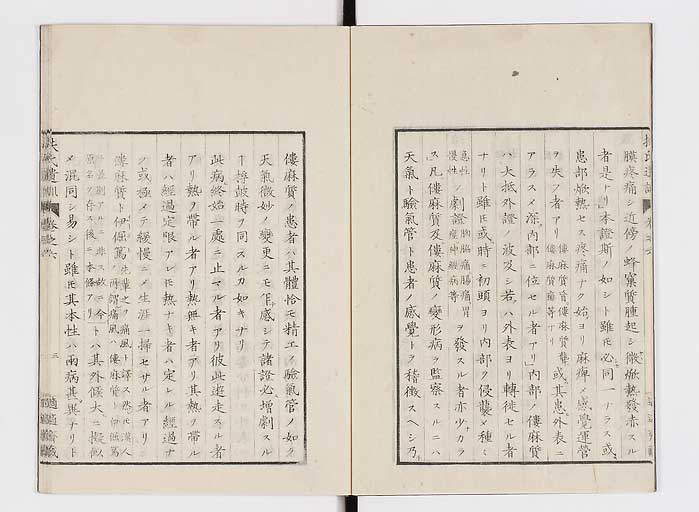 膜疼痛シ近傍ノ蜂窠質腫起シ微焮熱發赤スル
者是ナリ本證斯ノ如シト雖𪜈必同一ナラス或ハ
患部焮熱セス疼痛ナク始ヨリ麻痺シ感覺運營
ヲ失フ者アリ僂麻質盲僂麻質聾
僂麻質痛等ナリ其患外表ニ
アラスメ深ク内部ニ位セル者アリ内部ノ僂麻質
ハ大抵外證ノ波及シ若クハ外表ヨリ轉徙セル者
ナリト雖𪜈或ハ時ニ初頭ヨリ内部ヲ侵襲メ種々
急性
慢性ノ劇證胸脇痛腸痛胃
痙神經病等ヲ發スル者亦少カラ
ス凡僂麻質及僂麻質ノ變形病ヲ監察スルニハ
天氣ト驗氣管ト患者ノ感覺トヲ稽徴スヘシ乃
僂麻質ノ患者ハ其體恰モ精工ノ驗氣管ノ如ク
天氣微妙ノ變更ニモ感シテ諸證必増劇スル
時ヲ同スルカ如キナリ
此病終始一處ニ止マル者アリ彼此遊走スル者
アリ熱ヲ帶ル者アリ熱無キ者アリ其熱ヲ帶ル
者ハ經過定限アレ𪜈熱ナキ者ハ定レル經過ナ
ク或極メテ緩慢ニメ生涯一掃セサル者アリ
僂麻質ト伊倔篤
メ混同シ易シト雖𪜈其本性ハ兩病甚異ナリト
扶氏遺訓
卷之六
三
適適齋藏